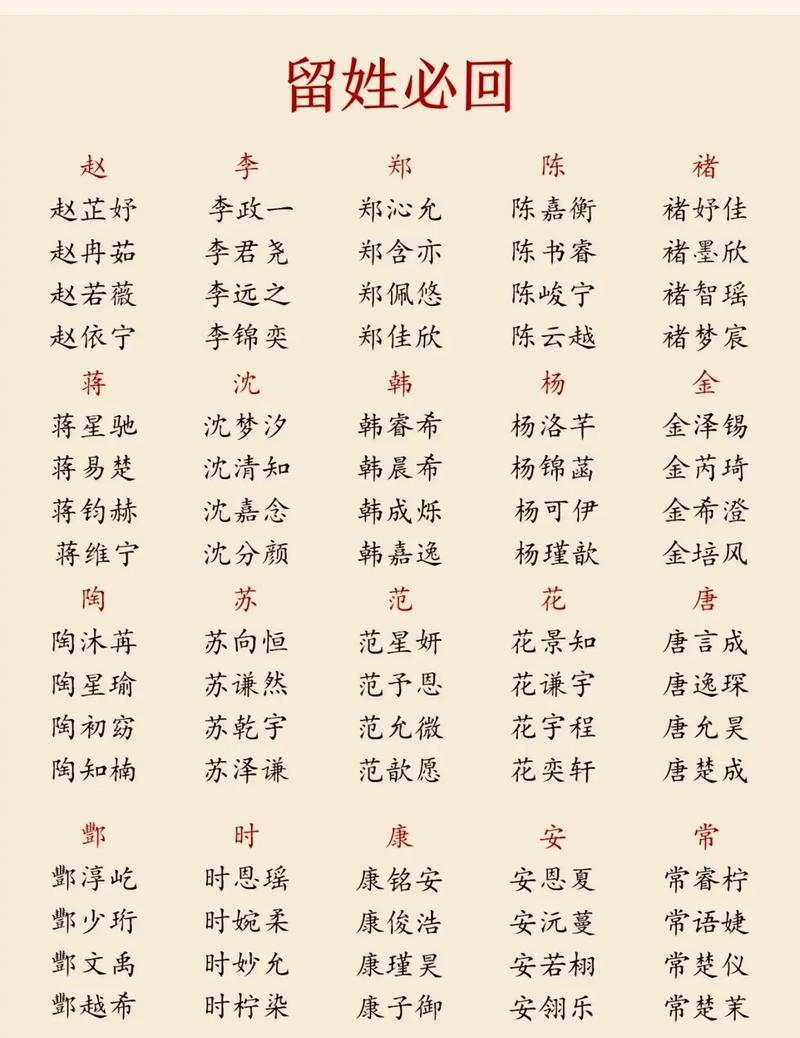 留姓必回
赵 李 郑 陈 褚
赵芷妤 李政一 郑沁允 陈嘉衡 褚妤佳
赵冉茹 李君尧 郑含亦 陈书睿 褚墨欣
赵若薇 李远之 郑佩悠 陈峻宁 褚智瑶
赵依宁 李锦奕 郑佳欣 陈云越 褚梦宸
蒋 沈 韩 杨 金
蒋星驰 沈梦汐 韩睿希 杨洛芊 金泽锡
蒋易楚 沈清知 韩晨希 杨锦菡 金芮琦
蒋钧赫 沈嘉念 韩成烁 杨可伊 金希澄
蒋维宁 沈分颜 韩嘉逸 杨瑾歆 金培风
陶 苏 范 花 唐
陶沐苒 苏向恒 范星妍 花景知 唐言成
陶星瑜 苏谦然 范予恩 花谦宇 唐逸琛
陶初窈 苏乾宇 范允微 花宇程 唐允昊
陶知楠 苏泽谦 范歆愿 花奕轩 唐楚成
酆 时 康 安 常
酆淳屹 时恩瑶 康铭安 安恩夏 常睿柠
酆少珩 时婉柔 康俊浩 安沅蔓 常语婕
酆文禹 时妙允 康瑾昊 安若栩 常楚仪
酆越希 时柠染 康子御 安翎乐 常楚茉